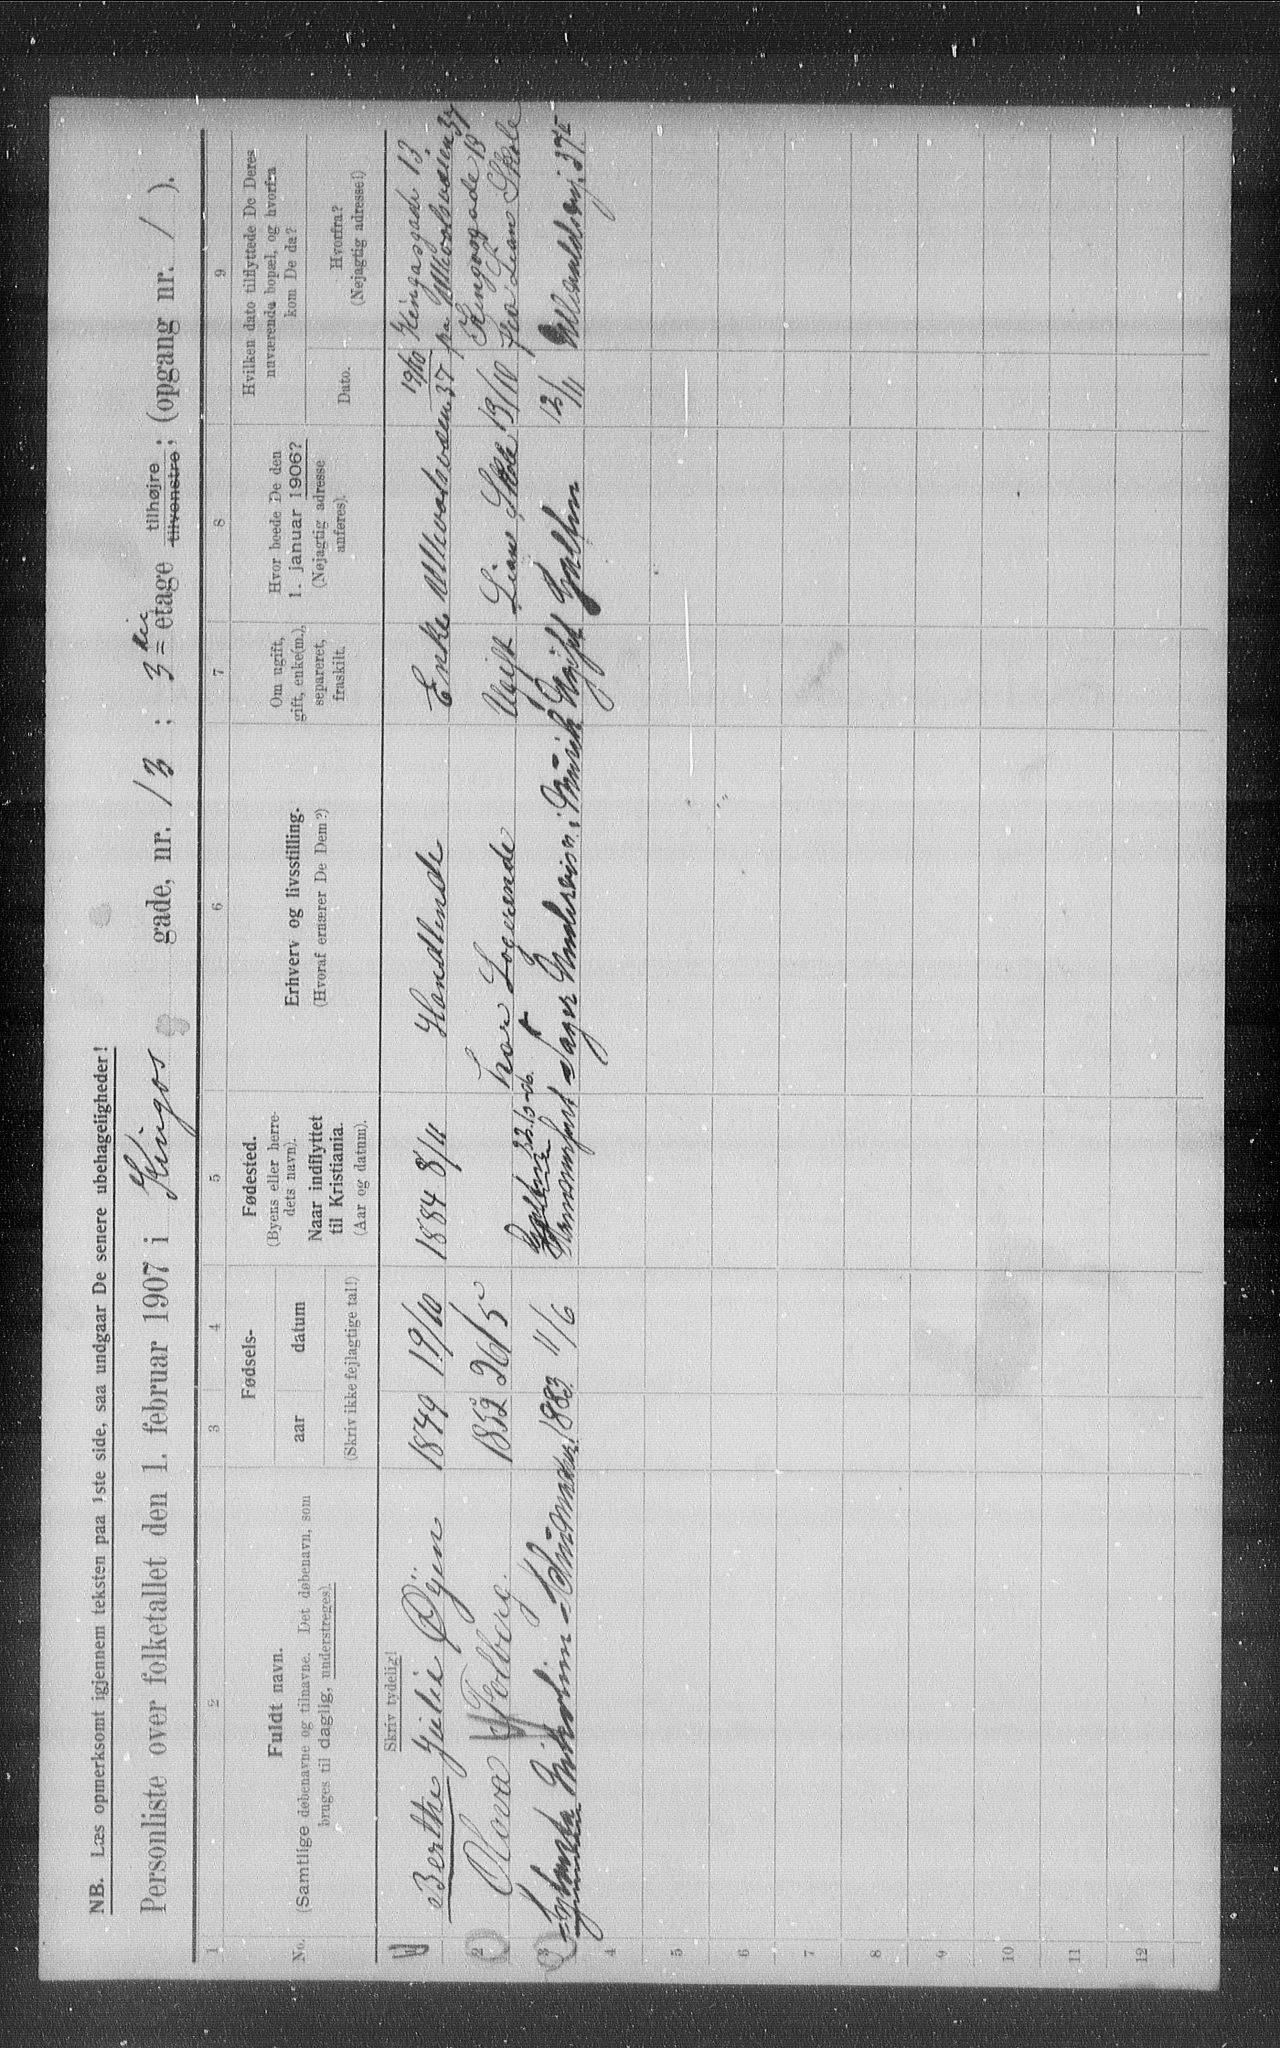 NB. Læs opmerksomt igjennem teksten paa 1ste side, saa undgaar De senere ubehageligheder!
Personliste over folketallet den 1. februar 1907 i Kingos gade, nr. 13 ; 3die etage tilhøjre tilvenstre ; (opgang nr. / ).
1 2 3 4 5 6 7 8 9
No.
Fuldt navn.
(Samtlige døbenavne og tilnavne. Det døbenavn, som
bruges til daglig, understreges).
Fødsels-
aar datum
(Skriv ikke fejlagtige tal!)
Fødested.
(Byens eller herre-
dets navn).
Naar indflyttet
til Kristiania.
(Aar og datum).
Erhverv og livsstilling.
(Hvoraf ernærer De Dem?)
Om ugift,
gift, enke(m.),
separeret,
fraskilt.
Hvor boede De den
1. januar 1906?
(Nøjagtig adresse
anføres).
Hvilken dato tilflyttede De Deres
nuværende bopæl, og hvorfra
kom De da?
Dato.
Hvorfra?
(Nøjagtig adresse!)
Skriv tydelig!
Berthe Julie Öyen 1849 19/10 1884 8/11 Handlende Enke 37 19/10 Kingosgade 13
fra 37
2 Olova Folberg. 1852 26/5 Logerende Ugift Lian Skole 19/10 Kingosgade 13
fra Lian Skole
3 1883 11/6 Hammerfest i Musik Ugift 12/11 37
4
5
6
7
8
9
10
11
12